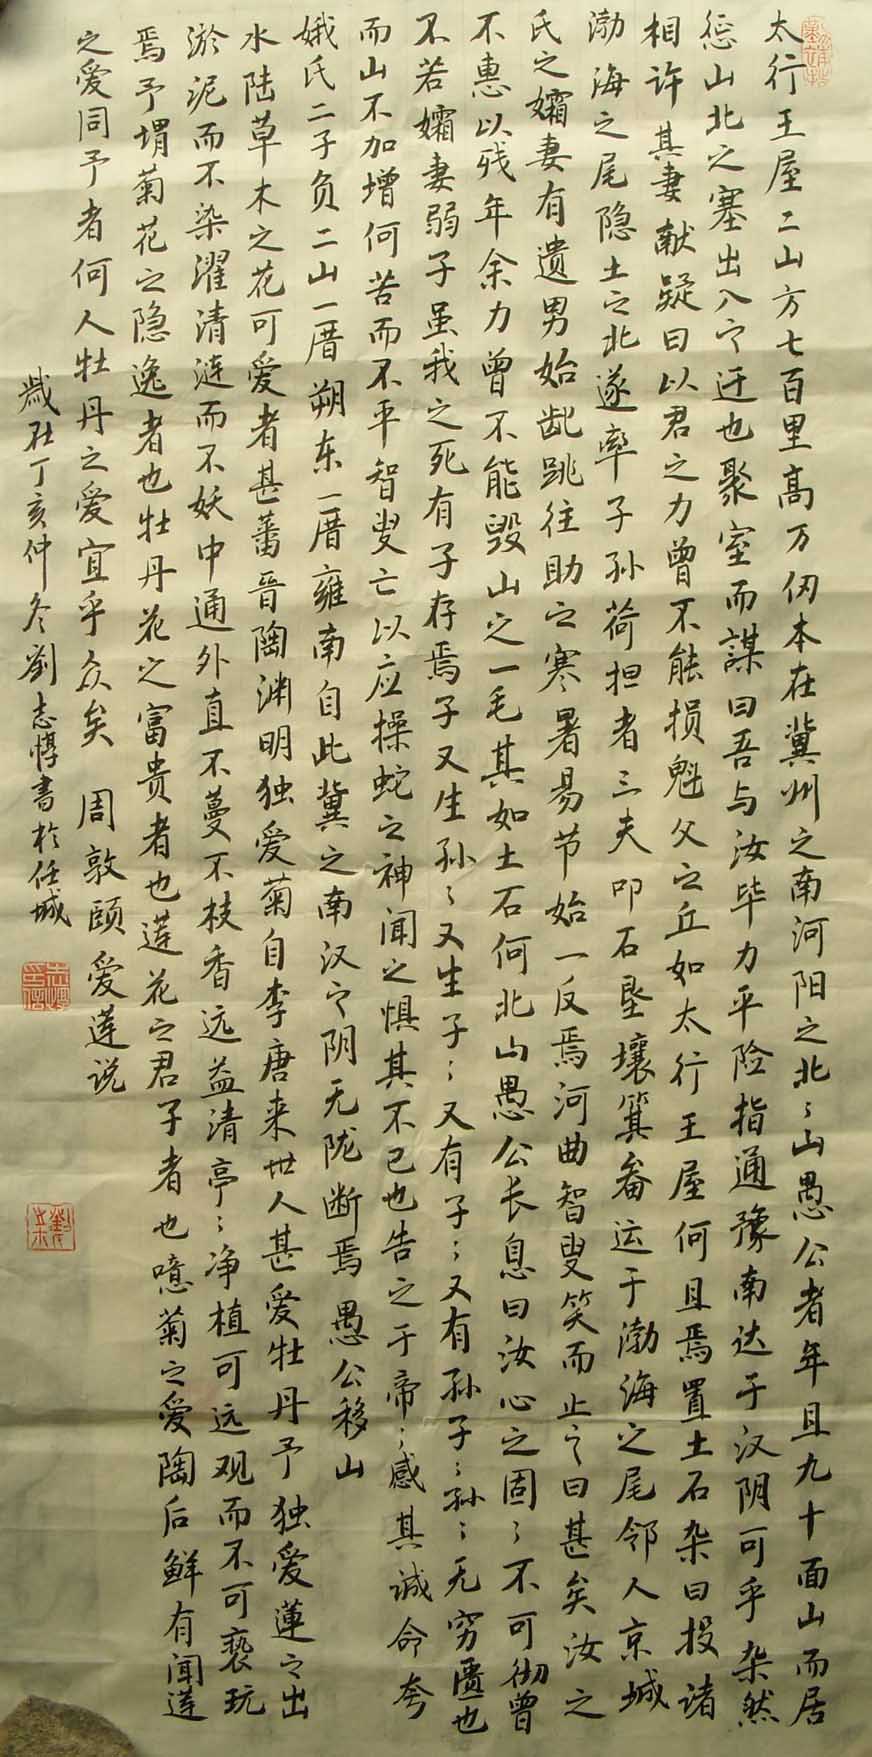 太行王屋二山方七百里高万仞本在冀州之南河阳之北々山愚公者年且九十面山而居
惩山北之塞出入之迂也聚室而謀曰吾与汝毕力平险指通豫南达于汉阴可乎杂然
相许其妻献疑曰以君之力曾不能损魁父之丘如太行王屋何且焉置土石杂曰投诸
渤海之尾隐土之北遂率子孙荷担者三夫叩石垦壤箕畚运于渤海之尾邻人京城
氏之孀妻有遗男始龀跳往助之寒暑易节始一反焉河曲智叟笑而止之曰甚矣汝之
不惠以残年余力曾不能毁山之一毛其如土石何北山愚公长息曰汝心之固々不可彻曾
不若孀妻弱子虽我之死有子存焉子又生孙々又生子々又有子々又有孙子々孙々无穷匮也
而山不加增何苦而不平智叟亡以应操蛇之神闻之惧其不已也告之于帝々感其诚命夸
娥氏二子负二山一厝朔东一厝雍南自此冀之南汉之阴无陇断焉 愚公移山
水陆草木之花可爱者甚蕃晋陶渊明独爱菊自李唐来世人甚爱牡丹予独爱蓮之出
淤泥而不染濯清涟而不妖中通外直不蔓不枝香远益清亭々净植可远观而不可亵玩
焉予谓菊花之隐逸者也牡丹花之富贵者也莲花之君子者也噫菊之爱陶后鲜有闻莲
之爱同予者何人牡丹之爱宜乎众矣 周敦颐爱莲说
歲在丁亥仲冬劉志惇書於任城